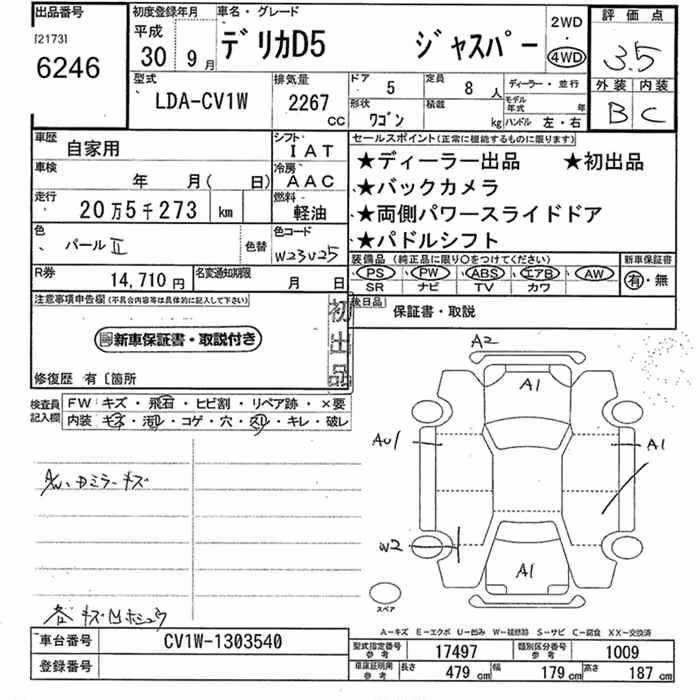 出品番号 初度登録年月 車名・グレード 2WD 評価点
[2173] 平成 デリカD5 ジャスパー 3.5
6246 30年 9月 4WD
型式 排気量 ドア 5 定員 8人 ディーラー・並行 外装 内装
LDA-CV1W 2267cc 形状 ワゴン 積載 kg モデル年式 年 ハンドル 左・右 B C
車歴 自家用 シフト IAT セールスポイント(正常に機能するものに限ります)
車検 年 月( 日) 冷房 AAC ★ディーラー出品 ★初出品
走行 20万5千273 km 燃料 軽油 ★バックカメラ
★両側パワースライドドア
色 パールⅡ 色替 色コード W23U25 ★パドルシフト
装備品(純正品に限り○をつけてください) 新車保証書
R券 14,710円 名変通知期限 月 日 PS PW ABS エアB AW 有・無
SR ナビ TV カワ
注意事項申告欄(不具合内容等は具体的に記入して下さい) 後日品 保証書・取説
初出品
新車保証書・取説付き
修復歴 有〔箇所
検査員記入欄 FW キズ・飛石・ヒビ割・リペア跡・×要
内装 キズ・汚レ・コゲ・穴・スレ・キレ・破レ
A2
A1
AU1 A1
ドミラーキズ
W2
A1
スペア
A-キズ E-エクボ U-凹み W-補修跡 S-サビ C-腐食 XX-交換済
車台番号 CV1W-1303540 型式指定番号 参考 17497 類別区分番号 参考 1009
登録番号 車庫証明用 参考 長さ 479cm 幅 179cm 高さ 187cm